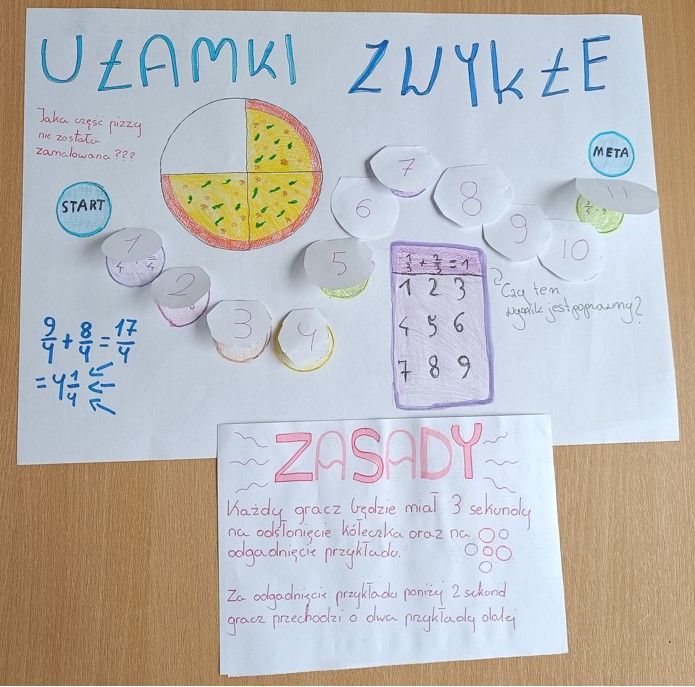 UŁAMKI ZWYKŁE
Jaka część pizzy
nie została
zamalowana???
START
META
1
2
3
4
5
6
7
8
9
10
11
9/4 + 8/4 = 17/4
= 4 1/4
1/3 + 2/3 = 1
1 2 3
4 5 6
7 8 9
Czy ten
wynik jest poprawny?
ZASADY
Każdy gracz będzie miał 3 sekundy
na odsłonięcie kółeczka oraz na
odgadnięcie przykładu.
Za odgadnięcie przykładu poniżej 2 sekund
gracz przechodzi o dwa przykłady dalej